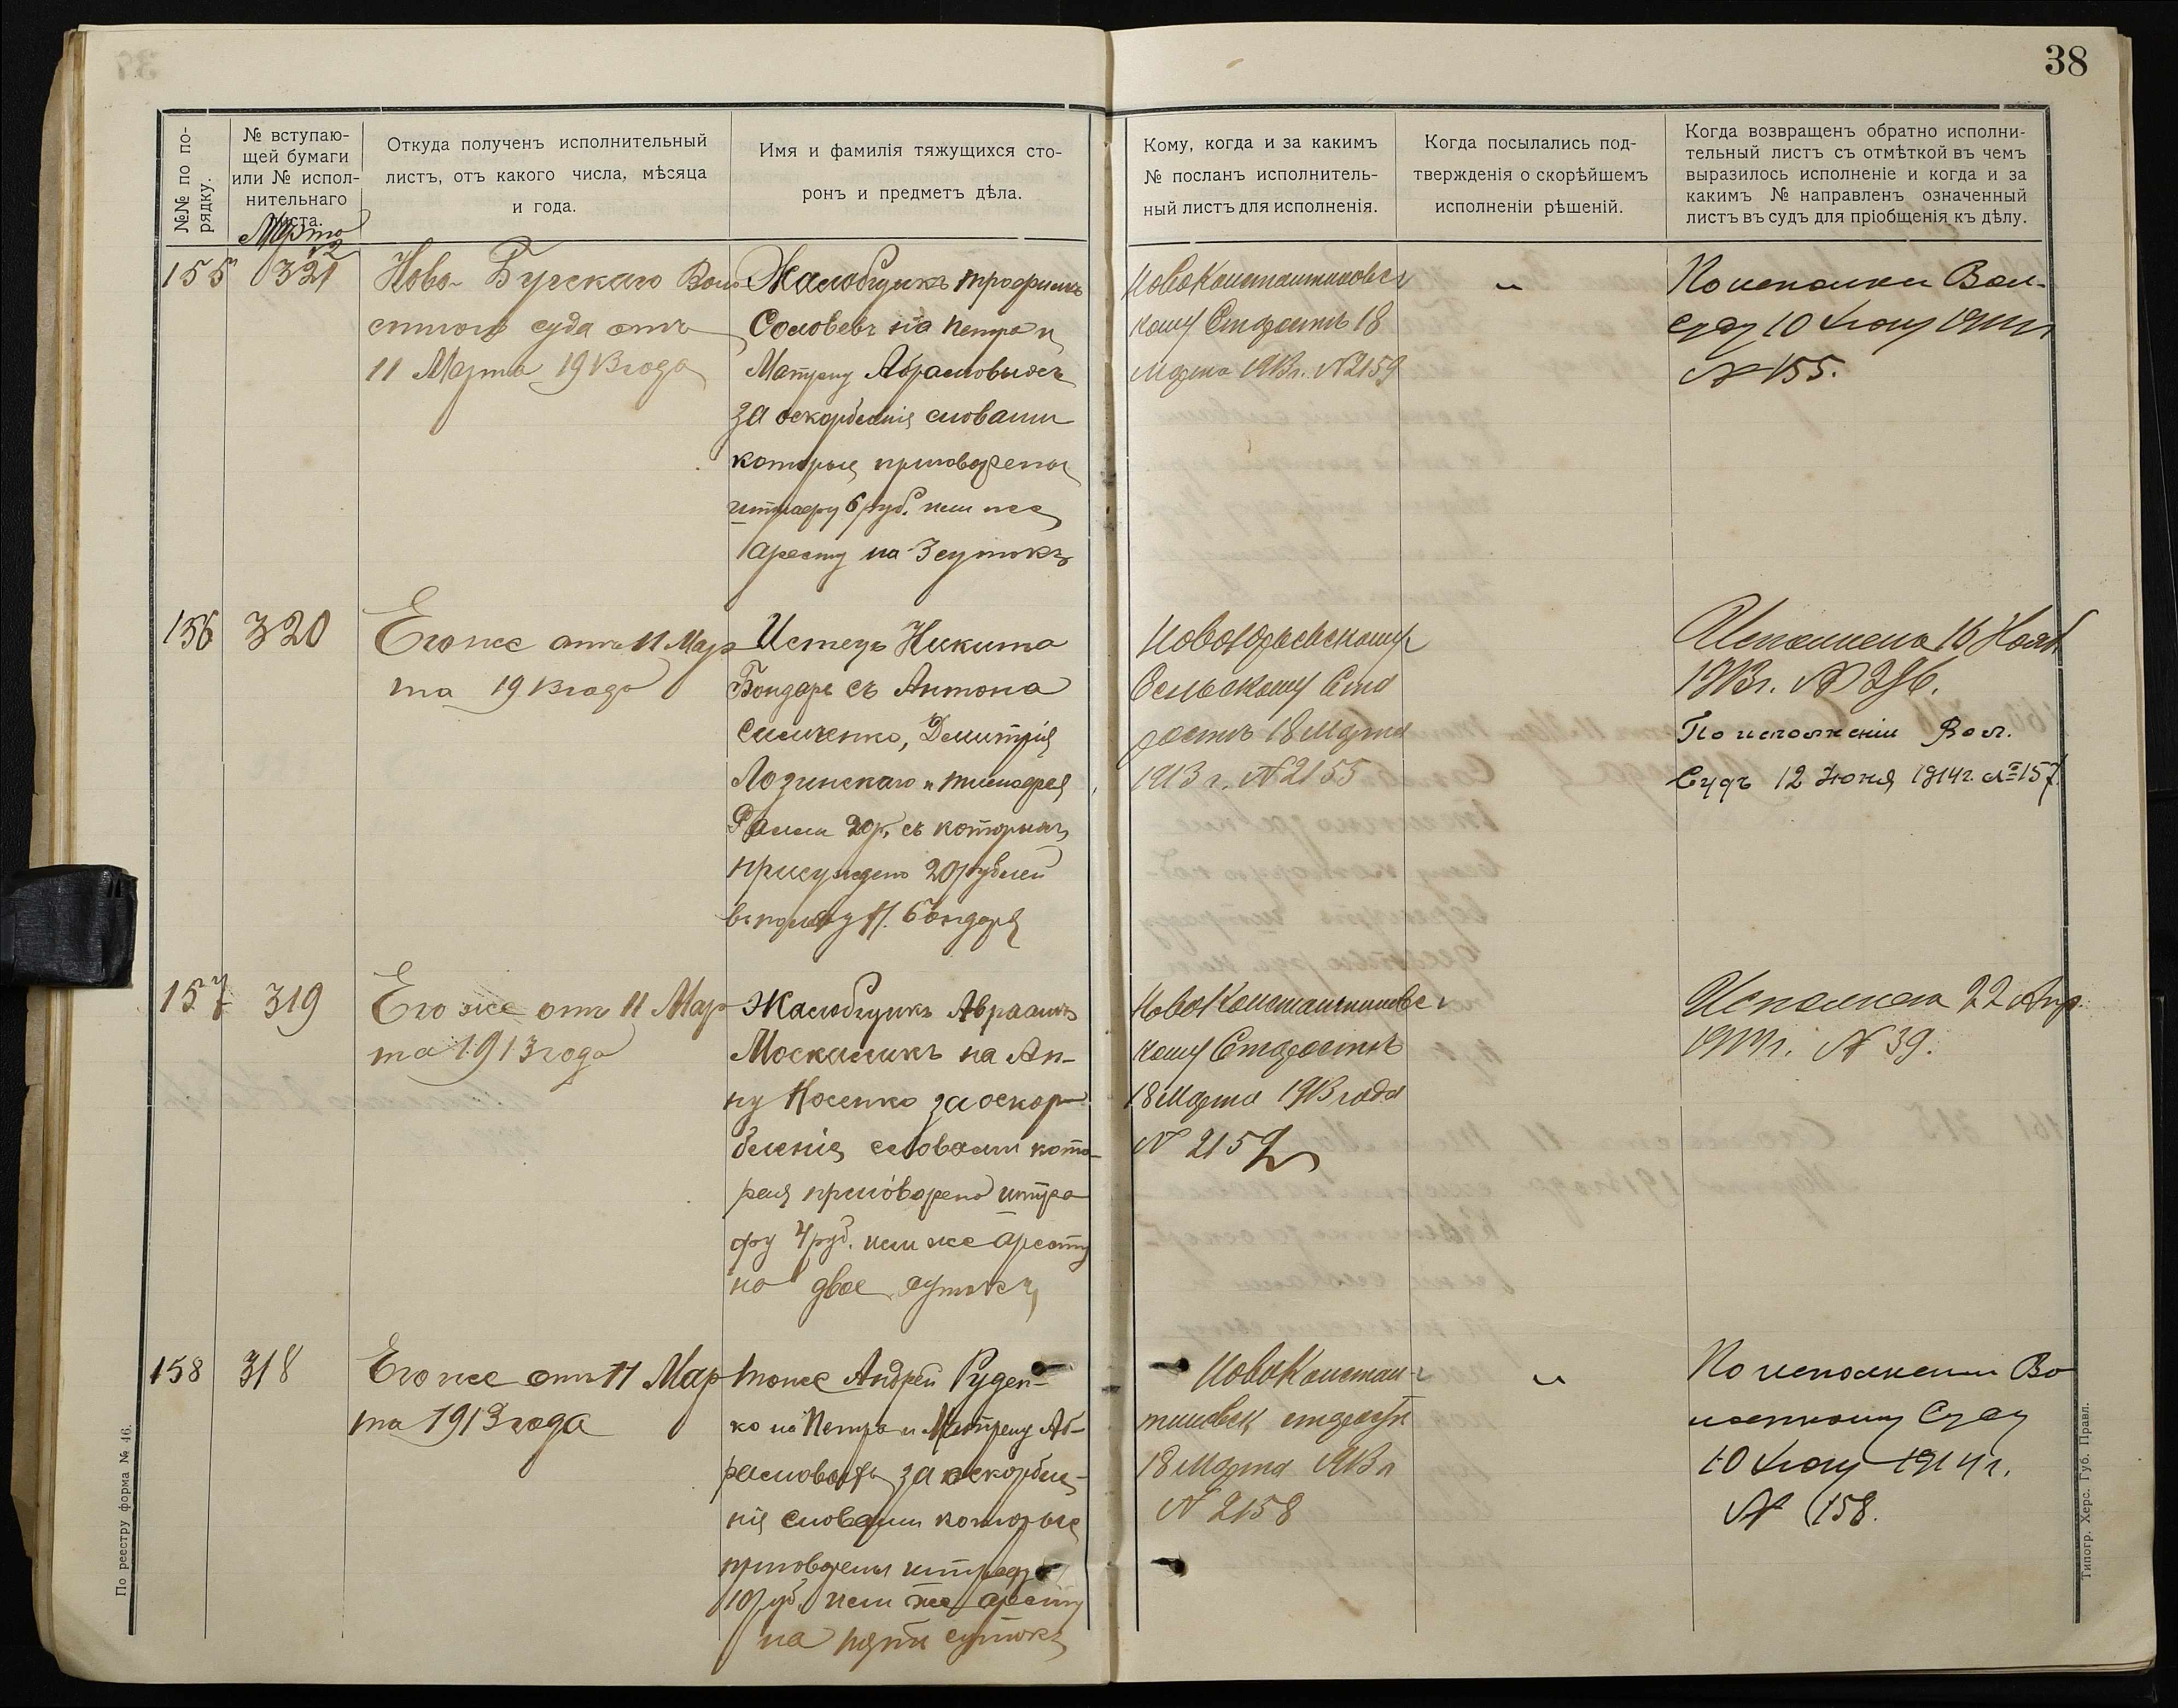 38
№№ по по-
рядку.
№ вступаю-
щей бумаги
или № испол-
нительнаго
листа.
Откуда полученъ исполнительный
листъ, отъ какого числа, мѣсяца
и года.
Имя и фамилія тяжущихся сто-
ронъ и предметъ дѣла.
Кому, когда и за какимъ
№ посланъ исполнитель-
ный листъ для исполненія.
Когда посылались под-
твержденія о скорѣйшемъ
исполненіи рѣшеній.
Когда возвращенъ обратно исполни-
тельный листъ съ отмѣткой въ чемъ
выразилось исполненіе и когда и за
какимъ № направленъ означенный
листъ въ судъ для пріобщенія къ дѣлу.
Марта
12
155 321
Ново-Бугскаго Вол
стного суда отъ
11 Марта 1913 года
Жалобщикъ Трофимъ
Соловевъ на Петра и
Матрену Абрамовыхъ
за оскорбленія словами
которые приговорены
штрафу 6 руб. или же
аресту на 3 сутокъ
НовоКонстантиновс
кому Старостѣ 18
Марта 1913г. №2159
"
По исполненіи Вол.
суду 10 Іюня 1914г
№ 155.
156 320
Егоже отъ 11 Мар
та 1913 года
Истецъ Никита
Бондарь съ Антона
Симченко, Димитрія
Лозинскаго и Тимофея
20р. съ которыхъ
присуждено 20 рублей
въ пользу Н. Бондаря
НовоЮрьевскому
Сельскому Ста
ростѣ 18 Марта
1913 г. №2155
Исполнено 16 Нояб
1913г. №
По исполненіи Вол.
Судъ 12 Июня 1914г. №157
157 319
Егоже отъ 11 Мар
та 1913 года
Жалобщикъ Авраамъ
Москаликъ на Ан-
ну Носенко за оскор
бленія словами кото-
рая приговорена штра
фу 4 руб. или же аресту
на двое сутокъ
НовоКонстантиновс
кому Старостѣ
18 Марта 1913 года
№ 215
Исполнена 22 Апр.
1914г. № 39.
158 318
Егоже отъ 11 Мар
та 1913 года
Тоже Андрей Руден-
ко на Петра и Матрену Аб-
рамовыхъ за оскорбле-
нія словами которые
приговорены штрафу
10 руб. или же аресту
на пять сутокъ
НовоКонстан-
тиновск старостѣ
18 Марта 1913 г
№ 2158
"
По исполненіи Во
лостному Суду
10 Іюня 1914г.
№ 158.
По реестру форма № 46.
Типогр. Херс. Губ. Правл.